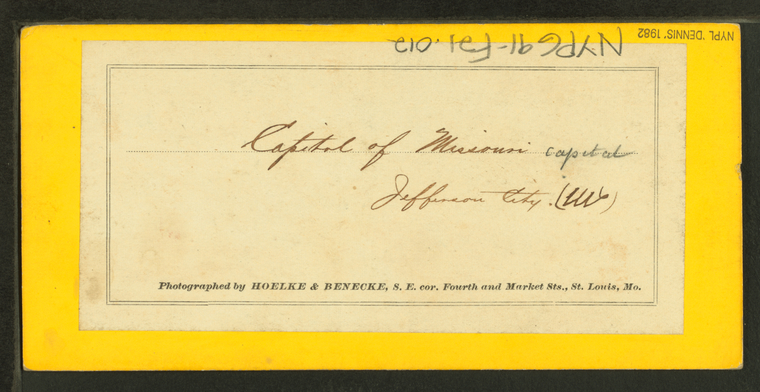 NYPL 'DENNIS' 1982
NYPG91-F21.012
Capitol of Missouri capital
Jefferson City. (Mo)
Photographed by HOELKE & BENECKE, S. E. cor. Fourth and Market Sts., St. Louis, Mo.